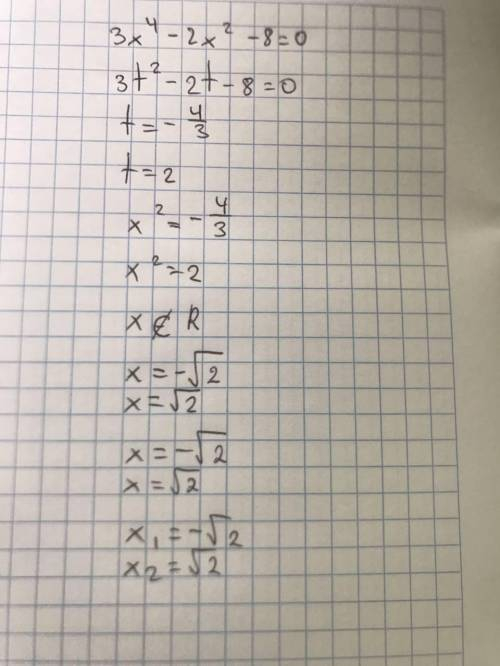 3x⁴ - 2x² - 8 = 0
3t² - 2t - 8 = 0
t = - 4/3
t = 2
x² = - 4/3
x² = 2
x ∉ R
x = -√2
x = √2
x = -√2
x = √2
x₁ = -√2
x₂ = √2